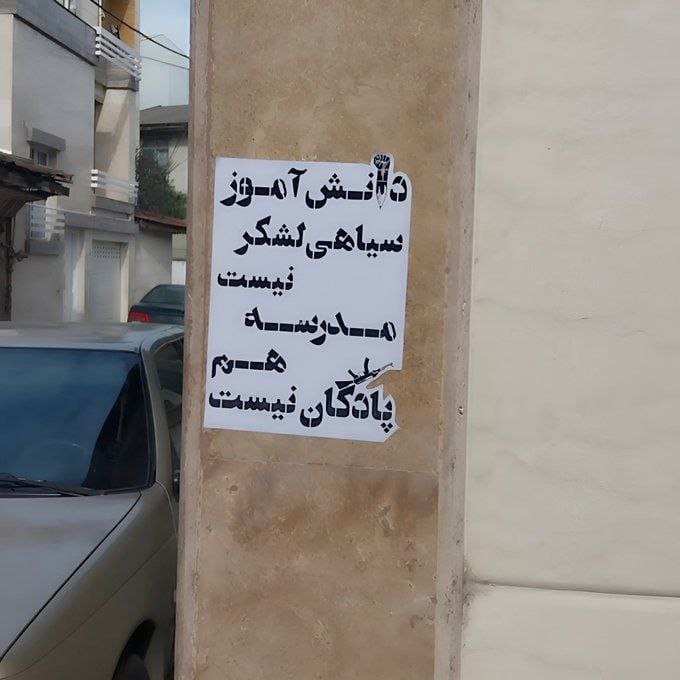 دانش‌آموز
سیاهی‌لشکر
نیست
مدرسه
هم
پادگان نیست